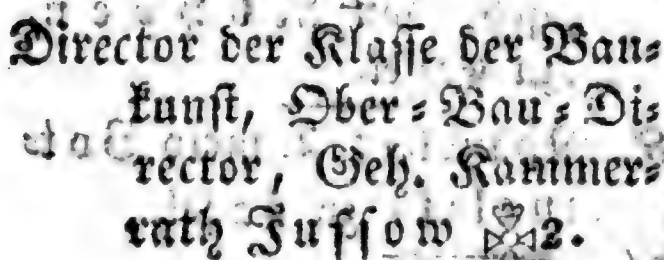 Director der Klaſſe der Bau⸗
kunſt, Ober⸗Bau⸗Di⸗
rector, Geh. Kammer⸗
rath Fuſſow 2.